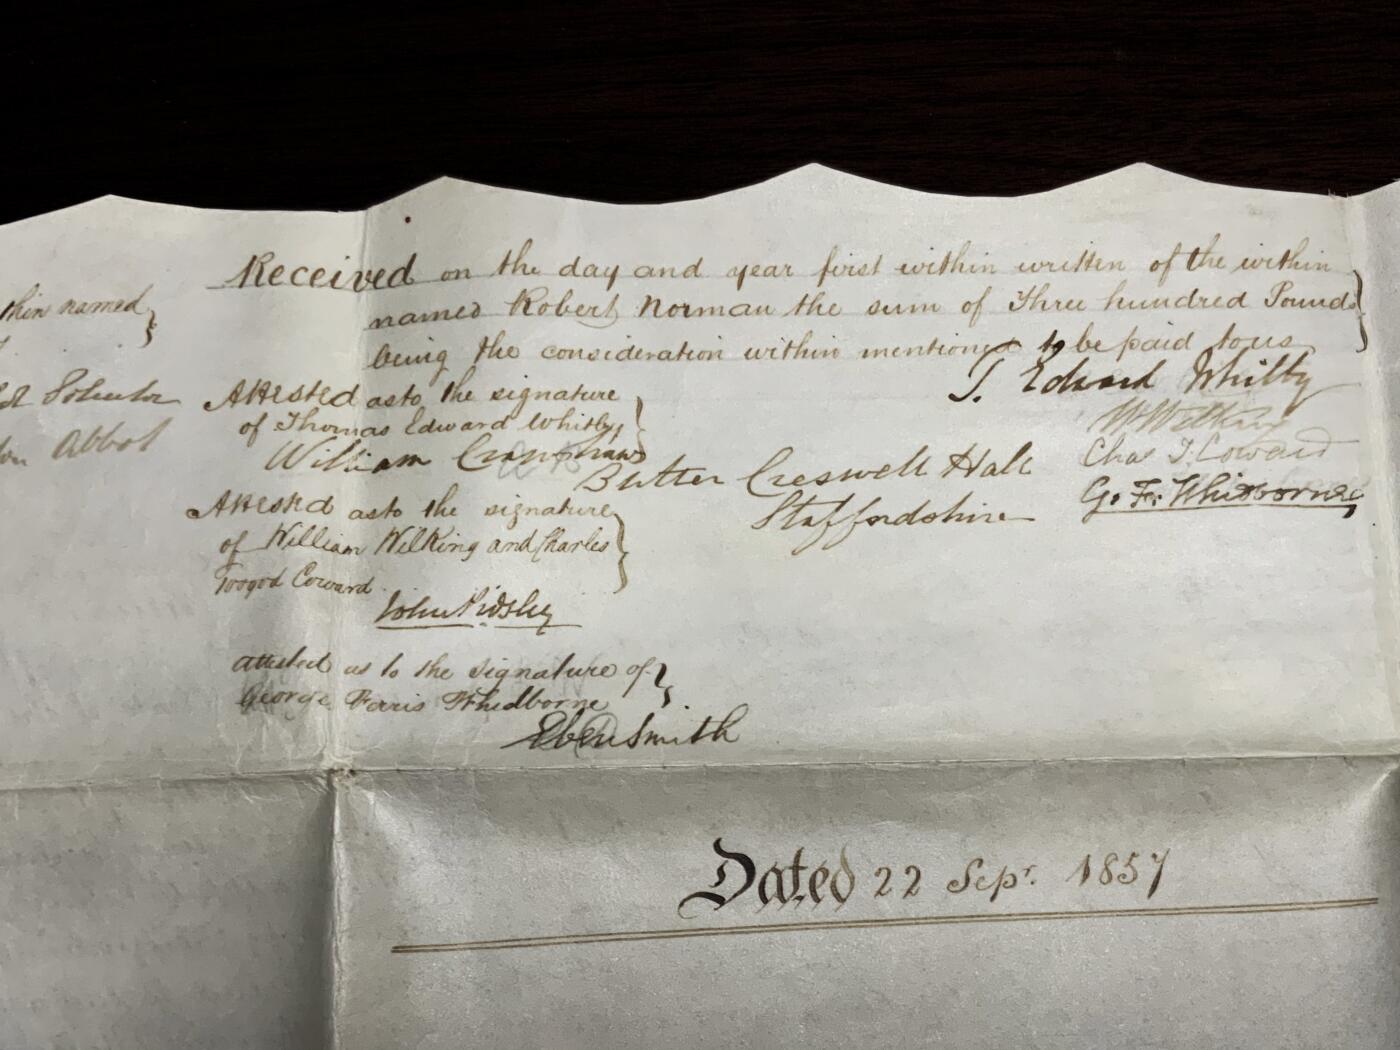 thin named
Received on the day and year first within written of the within
named Robert Norman the sum of Three hundred Pounds
being the consideration within mentioned to be paid to us
T. Edward Whitby
W Wilking
Chas T. Coward
G. F. Whidborne
Attested as to the signature
of Thomas Edward Whitby
William
Butler Creswell Hall
Staffordshire
Attested as to the signature
of William Wilking and Charles
Toogod Coward
John Pidsley
attested as to the signature of
George Faris Whidborne
Eben Smith
Abbot
Dated 22 Sepr. 1857